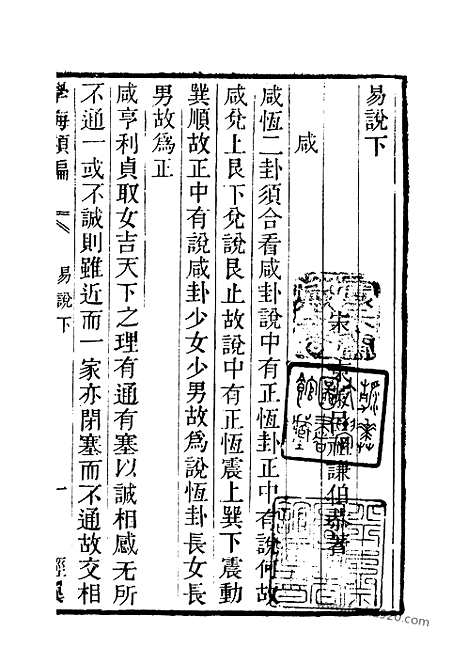 易說下
宋 呂祖謙伯恭著
咸
咸恆二卦須合看咸卦說中有正恆卦正中有說何故
咸兌上艮下兌說艮止故說中有正恆震上巽下震動
巽順故正中有說咸卦少女少男故爲說恆卦長女長
男故爲正
咸亨利貞取女吉天下之理有通有塞以誠相感無所
不通一或不誠則雖近而一家亦閉塞而不通故交相
學海類編
易說下
一
經翼